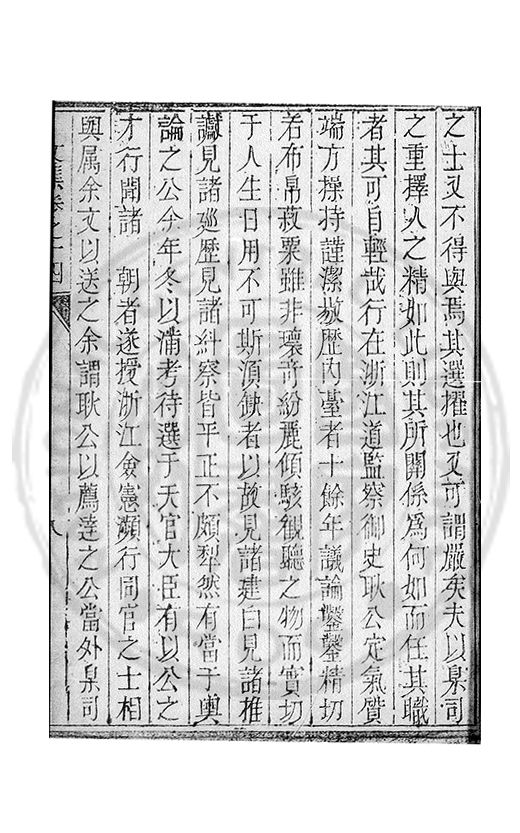 之士又不得與焉其選擢也又可謂嚴矣夫以臬司
之重擇人之精如此則其所關係爲何如而任其職
者其可自輕哉行在浙江道監察御史耿公定氣質
端方操持謹潔敭歷內臺者十餘年議論鑿鑿精切
若布帛菽粟雖非瓌竒紛麗傾駭觀聽之物而實切
于人生日用不可斯湏缺者以故見諸建白見諸推
讞見諸廵歷見諸糾察皆平正不頗犁然有當于輿
論之公今年冬以滿考待選于天官大臣有以公之
才行聞諸　朝者遂授浙江僉憲瀕行同官之士相
與属余文以送之余謂耿公以薦逹之公當外臬司
文集卷之十四
八